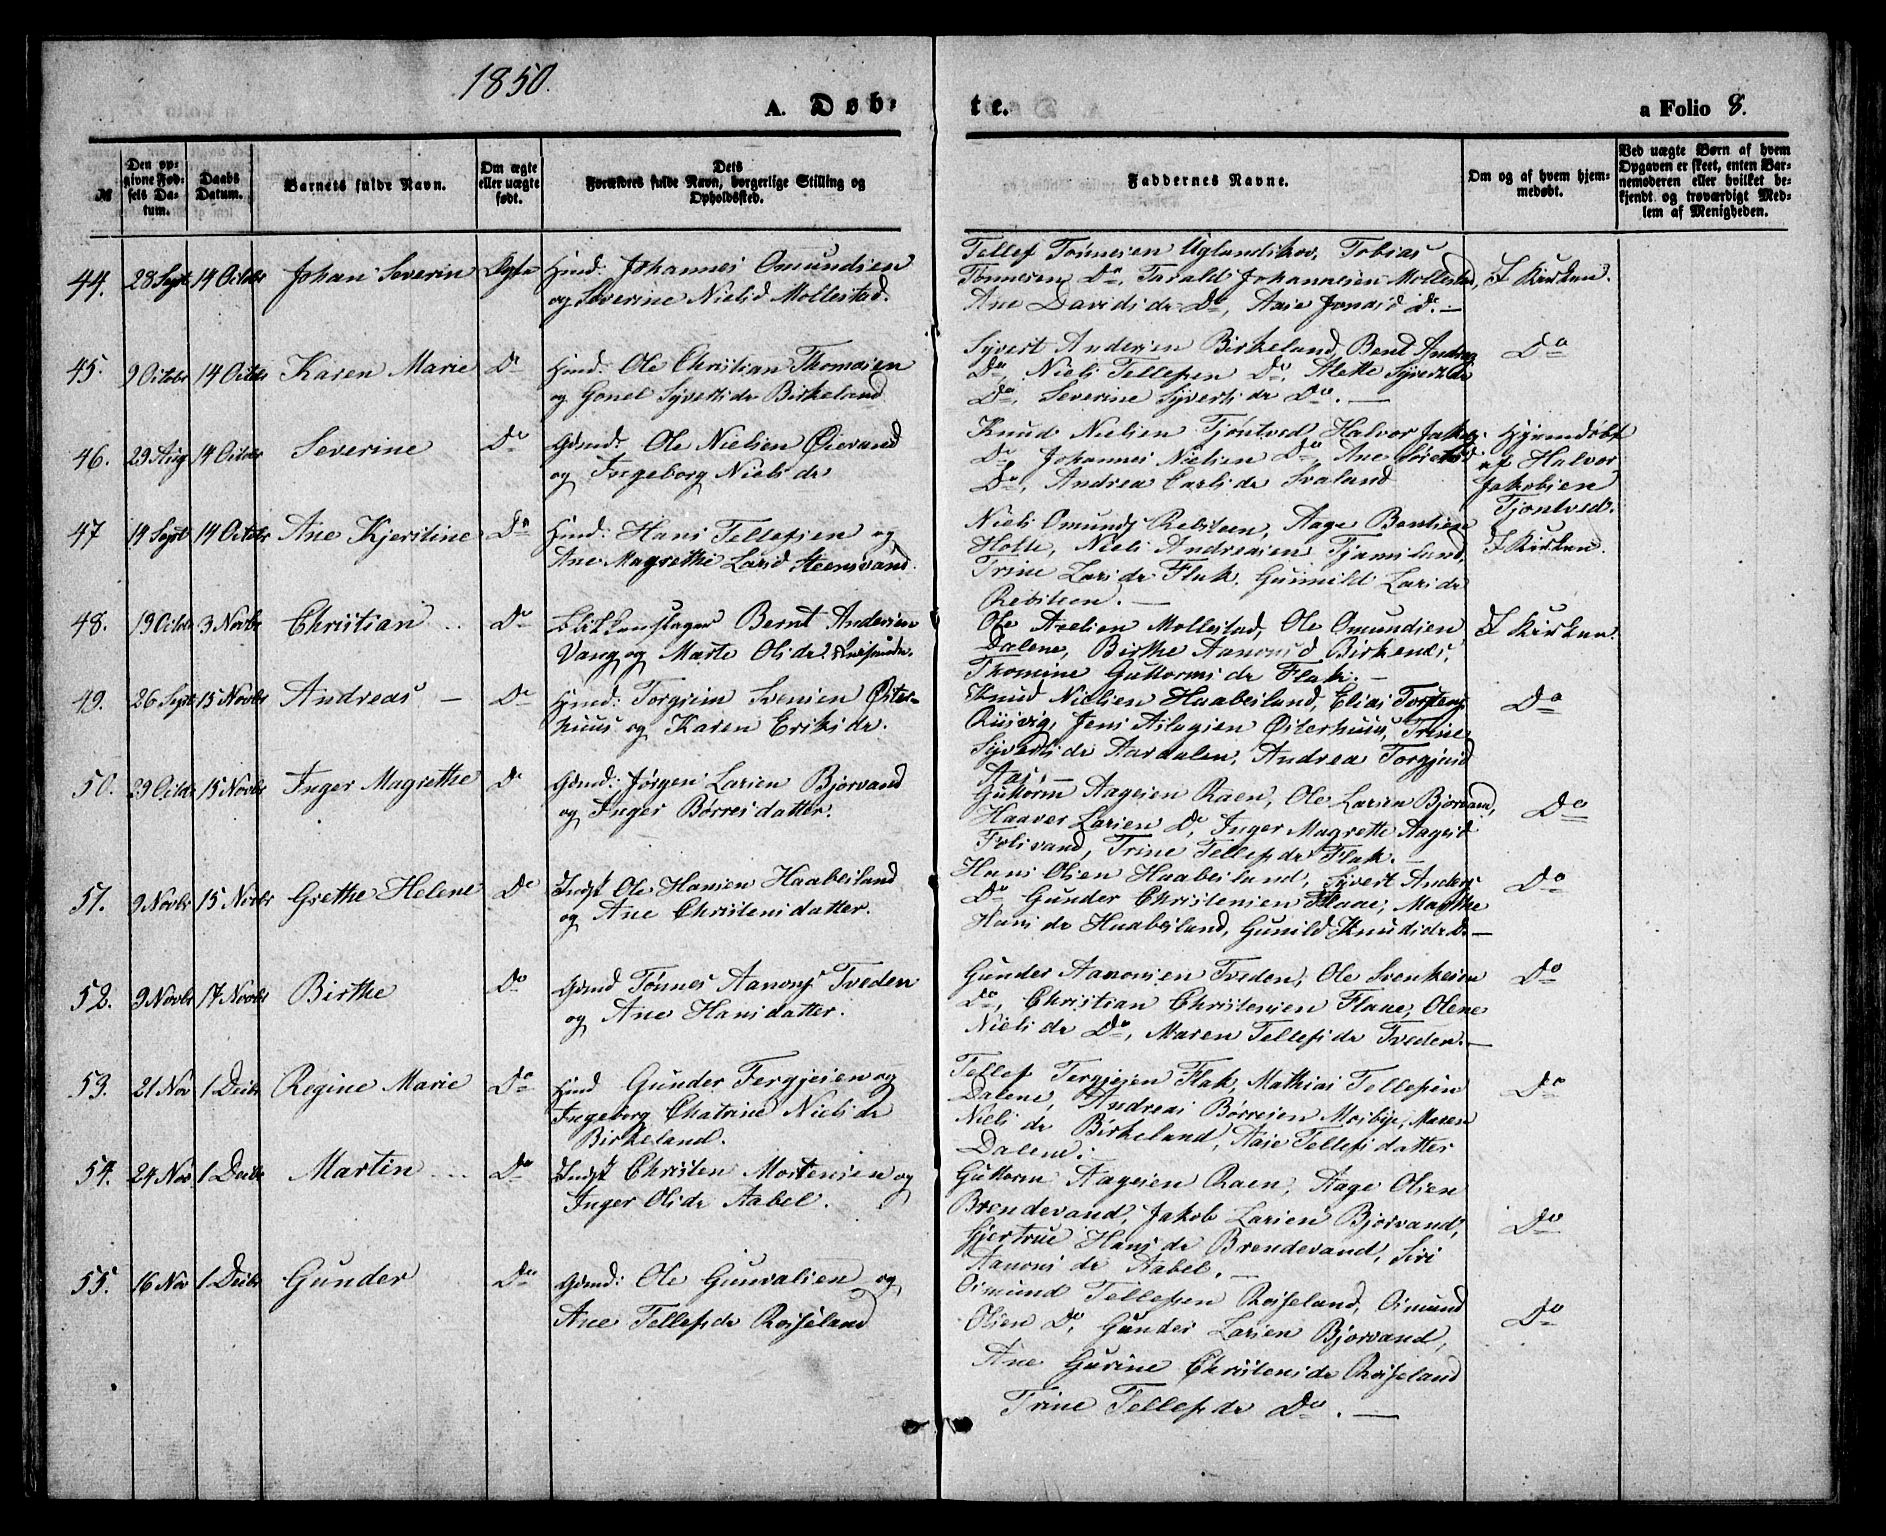 1850.
A. Døb-
te.
a Folio 8.
№
Den op-
givne Fød-
sels Da-
tum.
Daabs
Datum.
Barnets fulde Navn.
Om ægte
eller uægte
født.
Dets
Forældres fulde Navn, borgerlige Stilling og
Opholdssted.
Faddernes Navne.
Om og af hvem hjem-
medøbt.
Ved uægte Børn af hvem
Opgaven er skeet, enten Bar-
nemoderen eller hvilket be-
kjendt og troværdigt Med-
lem af Menigheden.
44. 28 Sept 14 Octobr Johan Severin Ægte
Hmd: Johannes Omundsen
og Severine Nielsd Mollestad.
Tellef Tønnesen Uglandskov, Tobias
Tønnesen Do, Tarald Johannesen Mollestad,
Ane Davidsdr Do, Aase Jonasd Do. —
I Kirken.
45. 9 Octobr 14 Octobr Karen Marie Do
Hmd: Ole Christian Thomsen
og Gonel Syvertsdr Birkeland
Syvert Andersen Birkeland, Bent Anders
Do, Niels Tellefsen Do, Mette Syvertsdr
Do, Severine Syvertsdr Do. —
Do
46. 29 Aug 14 Octobr Severine Do
Gmd: Ole Nielsen Øievand
og Ingeborg Nielsdr
Knud Nielsen Tjøntved, Halvor Jakobs
Do, Johannes Nielsen Do, Ane
Do, Andrea Carlsdr Svaland
Hjemdøbt
af Halvor
Jakobsen
Tjøntved.
47 14 Sept 14 Octobr Ane Kjerstine Do
Hmd: Hans Tellefsen og
Ane Magrethe Larsd Steensvand.
Niels Omunds Rebsteen, Aage Bentsen
Holte, Niels Andreasen Tjamsland,
Trine Larsdr Flak, Gunild Larsdr
Rebsteen. —
I Kirken.
48. 19 Octobr 3 Novbr Christian Do
Blikkenslager Bernt Andersen
Vang og Marte Olsdr
Ole Axelsen Mollestad, Ole Omundsen
Dalene, Birthe Aanonsd Birkenes,
Thomine Guttormsdr Flak. —
I Kirken.
49. 26 Sept 15 Novbr Andreas — Do
Hmd: Torgrim Svensen Øster-
huus og Karen Eriksdr.
Knud Nielsen Haabesland, Elias Torstens
Risvig, Jens Aslagsen Østerhuus, Trine
Syvertsdr Aardalen, Andrea Torgjusd
Aas. —
Do
50. 29 Octobr 15 Novbr Inger Magrethe Do
Gmd: Jørgen Larsen Bjorvand
og Inger Børresdatter.
Guttorm Aagesen Raen, Ole Larsen Bjorvand,
Haaver Larsen Do, Inger Magrette Aagesd
Folsvand, Trine Tellefsdr Flak. —
Do
51. 9 Novbr 15 Novbr Grethe Helene Do
Indst Ole Hansen Haabesland
og Ane Christensdatter.
Hans Olsen Haabesland, Syvert Anders
Do Gunder Christensen Flaae, Marthe
Hansdr Haabesland, Gunild Knudsdr Do —
Do
52. 9 Novbr 17 Novbr Birthe Do
Gmd Tønnes Aanons Tveden
og Ane Hansdatter.
Gunder Aanonsen Tveden, Ole Svenksen
Do, Christian Christensen Flaae, Olene
Nielsdr Do, Maren Tellefsdr Tveden. —
Do
53. 21 Nov 1 Decbr Regine Marie Do
Hmd Gunder Tergjesen og
Ingeborg Chatrine Nielsdr
Birkeland.
Tellef Tergjesen Flak, Mathias Tellefsen
Dalene, Andreas Børresen Mosbye, Maren
Nielsdr Birkeland, Aase Tellefsdatter
Dalene. —
Do
54. 24 Nov 1 Decbr Martin Do
Indst Christen Mortensen og
Inger Olsdr Aabel.
Guttorm Aagesen Raen, Aage Olsen
Brendevand, Jakob Larsen Bjorvand,
Gjertrue Hansdr Brendevand, Siri
Aanonsdr Aabel. —
Do
55. 16 Nov 1 Decbr Gunder Do
Gmd: Ole Gunvalsen og
Ane Tellefsdr Røiseland
Osmund Tellefsen Røiseland, Osmund
Olsen Do, Gunder Larsen Bjorvand,
Ane Gurine Christensdr Røiseland
Trine Tellefsdr Do. —
Do